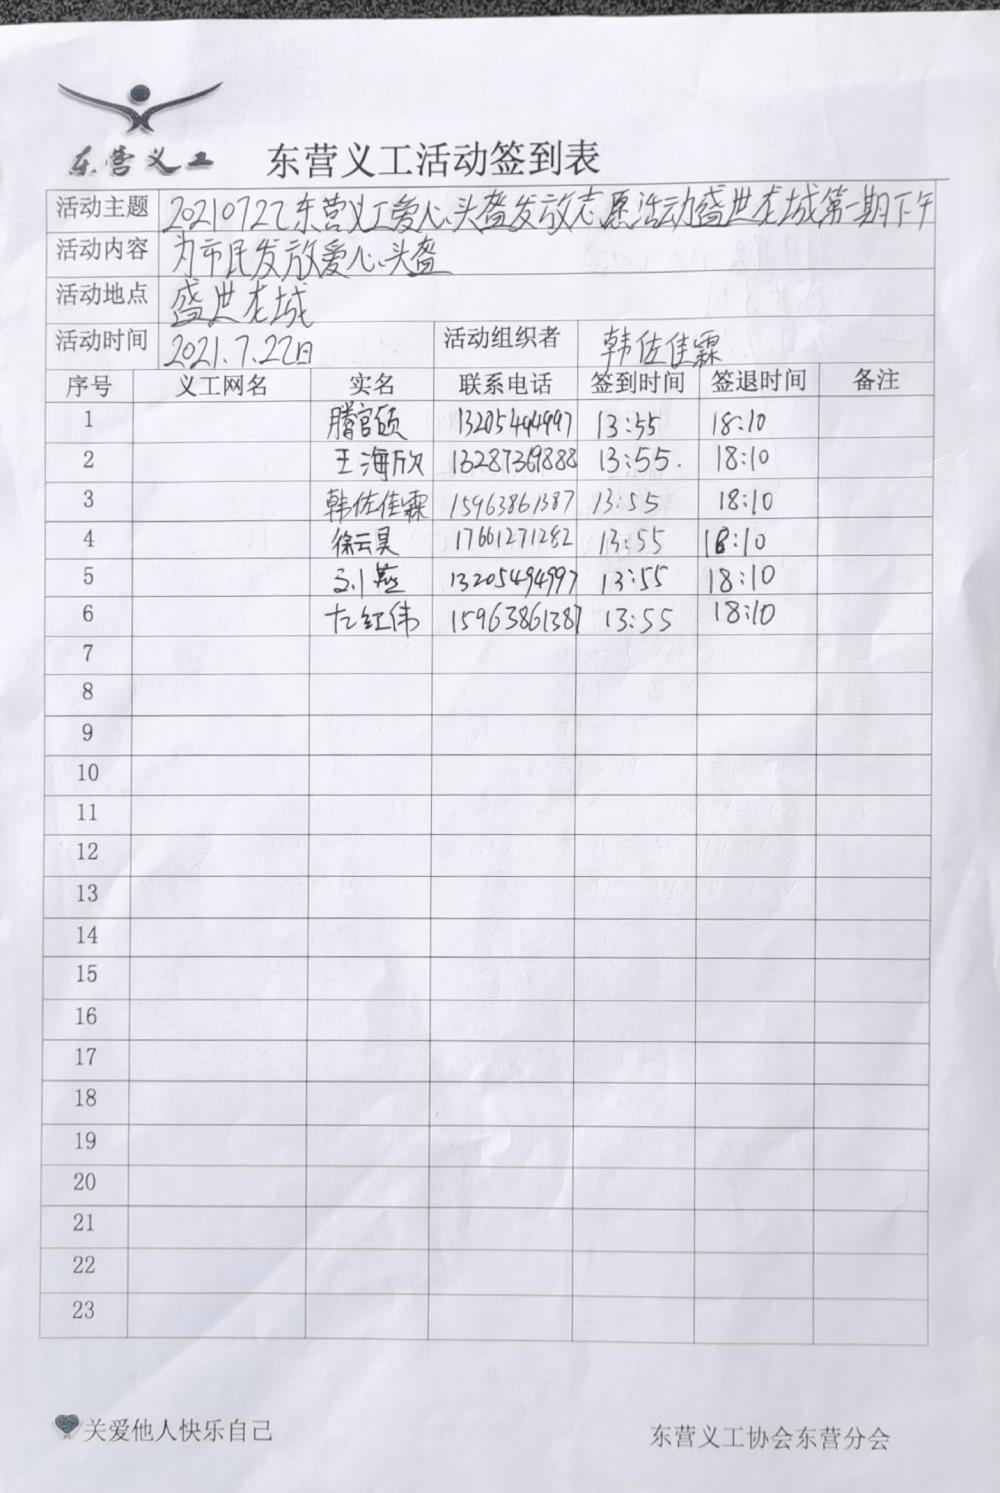 东营义工
东营义工活动签到表
活动主题 20210722东营义工爱心头盔发放志愿活动盛世龙城第一期下午
活动内容 为市民发放爱心头盔
活动地点 盛世龙城
活动时间 2021.7.22日 活动组织者 韩佐佳霖
序号 义工网名 实名 联系电话 签到时间 签退时间 备注
1 13205494997 13:55 18:10
2 王海欣 13287369888 13:55. 18:10
3 韩佐佳霖 15963861387 13:55 18:10
4 徐云昊 17661271282 13:55 18:10
5 刘燕 13205494997 13:55 18:10
6 红伟 15963861387 13:55 18:10
7
8
9
10
11
12
13
14
15
16
17
18
19
20
21
22
23
关爱他人快乐自己
东营义工协会东营分会